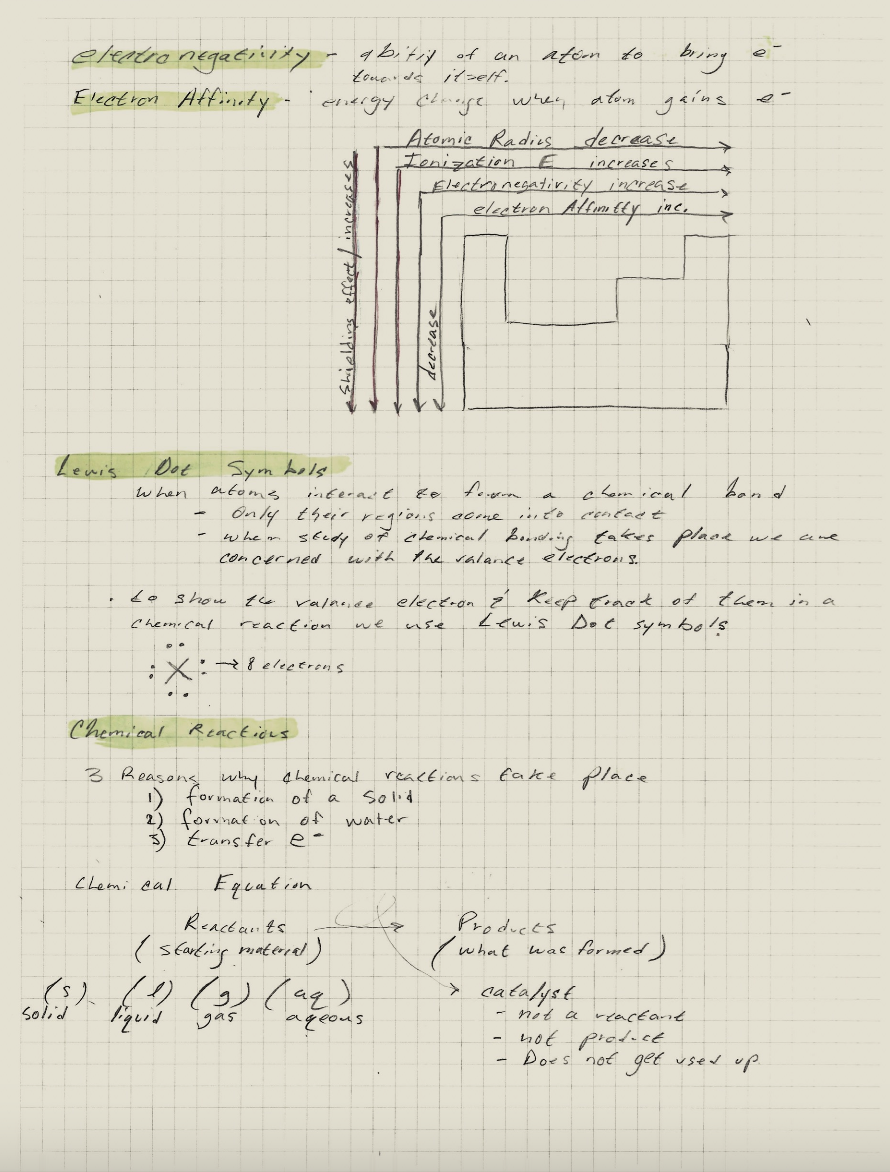 electronegativity - abitiy of an atom to bring e⁻
towards itself.
Electron Affinity - energy change when atom gains e⁻
Atomic Radius decrease
Ionization E increases
Electronegativity increase
electron Affinity inc.
Shielding effect / increases
decrease
Lewis Dot Symbols
when atoms interact to form a chemical bond
- Only their regions come into contact
- when study of chemical bonding takes place we are
concerned with the valance electrons.
. to show the valance electron & Keep track of them in a
chemical reaction we use Lewis Dot symbols
X → 8 electrons
Chemical Reactions
3 Reasons why chemical reactions take place
1) formation of a solid
2) formation of water
3) transfer e⁻
Chemical Equation
Reactants → Products
(starting material) (what was formed)
(s) (l) (g) (aq)
solid liquid gas aqeous
catalyst
- not a reactant
- not product
- Does not get used up